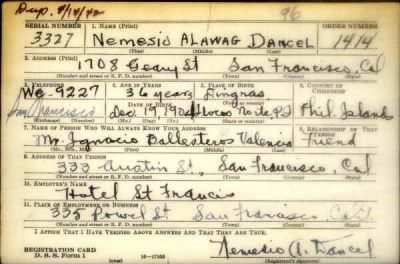 Dup. 9/14/42 96
SERIAL NUMBER 1. NAME (Print) ORDER NUMBER
3327 Nemesio Alawag Dancel 1414
(First) (Middle) (Last)
2. ADDRESS (Print)
1708 Geary St San Francisco, Cal
(Number and street or R. F. D. number) (Town) (County) (State)
3. TELEPHONE 4. AGE IN YEARS 5. PLACE OF BIRTH 6. COUNTRY OF CITIZENSHIP
We. 9227 36 years Lingras
San Francisco DATE OF BIRTH
Dec. 19, 1904 Ilocos Norte, P.I Phil. Islands
(Exchange) (Number) (Mo.) (Day) (Yr.) (State or country)
7. NAME OF PERSON WHO WILL ALWAYS KNOW YOUR ADDRESS 8. RELATIONSHIP OF THAT PERSON
Mr. Ignacio Ballesteros Valencia friend
(Mr., Mrs., Miss) (First) (Middle) (Last)
9. ADDRESS OF THAT PERSON
333 Austin St., San Francisco, Cal
(Number and street or R. F. D. number) (Town) (County) (State)
10. EMPLOYER'S NAME
Hotel St Francis
11. PLACE OF EMPLOYMENT OR BUSINESS
335 Powel St San Francisco, Calif.
(Number and street or R. F. D. number) (Town) (County) (State)
I AFFIRM THAT I HAVE VERIFIED ABOVE ANSWERS AND THAT THEY ARE TRUE.
REGISTRATION CARD
D. S. S. Form 1 16—17105 Nemesio A. Dancel
(Registrant's signature)